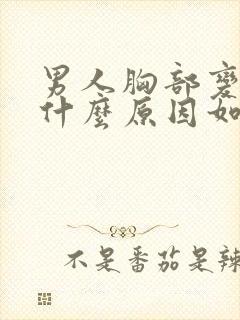 男人胸部變
什麼原因如
不是番茄是辣